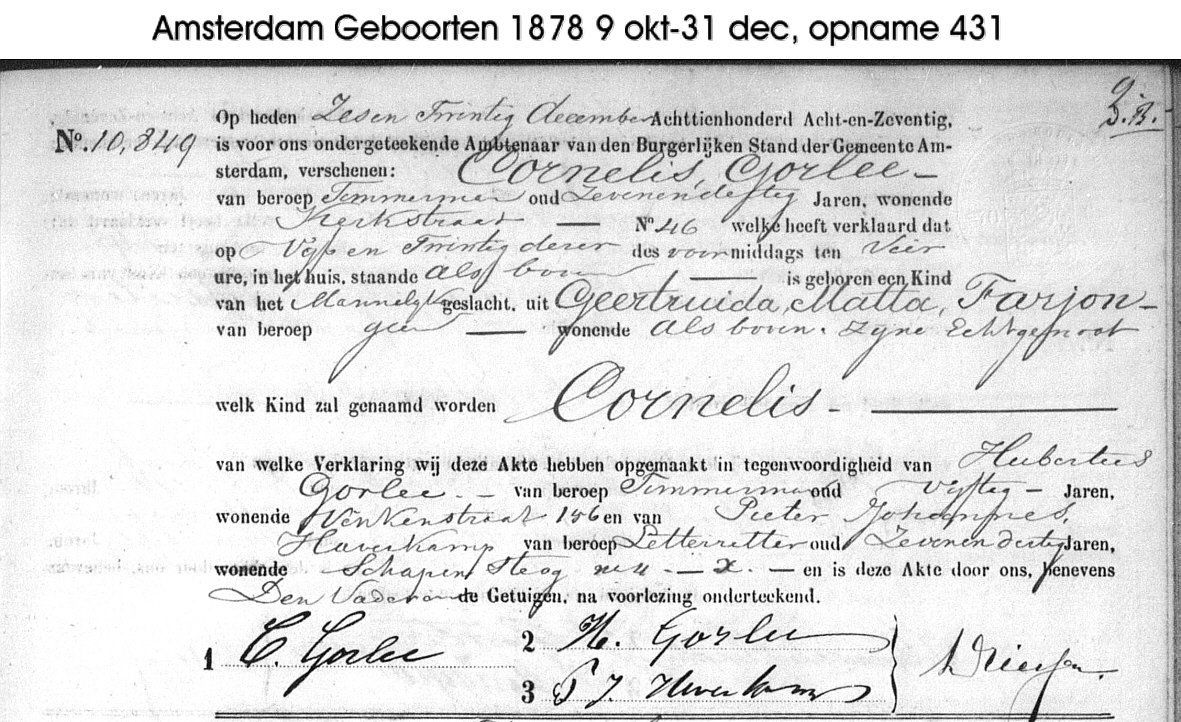 Amsterdam Geboorten 1878 9 okt-31 dec, opname 431
Op heden Zes en Twintig december Achttienhonderd Acht-en-Zeventig,
No. 10,849 is voor ons ondergeteekende Ambtenaar van den Burgerlijken Stand der Gemeente Am-
sterdam, verschenen: Cornelis, Gorlee -
van beroep Timmerman oud Zevenendertig Jaren, wonende
Kerkstraat — No 46 welke heeft verklaard dat
op Vijf en Twintig dezer des voormiddags ten Vier
ure, in het huis, staande als boven — is geboren een Kind
van het Mannelijk geslacht, uit Geertruida, Matta, Farjon -
van beroep geen — wonende als boven. Zijne Echtgenoot
welk Kind zal genaamd worden Cornelis - —
van welke Verklaring wij deze Akte hebben opgemaakt in tegenwoordigheid van Hubertus
Gorlee. - van beroep Timmerman oud Vijftig - Jaren,
wonende Vinkenstraat 156 en van Pieter Johannes,
Haverkamp van beroep Letterzetter oud Zevenendertig Jaren,
wonende Schapen Steeg - x. - en is deze Akte door ons, benevens
Den Vader en de Getuigen, na voorlezing onderteekend.
1 C. Gorlee
2 H. Gorlee
3 P J. Haverkamp